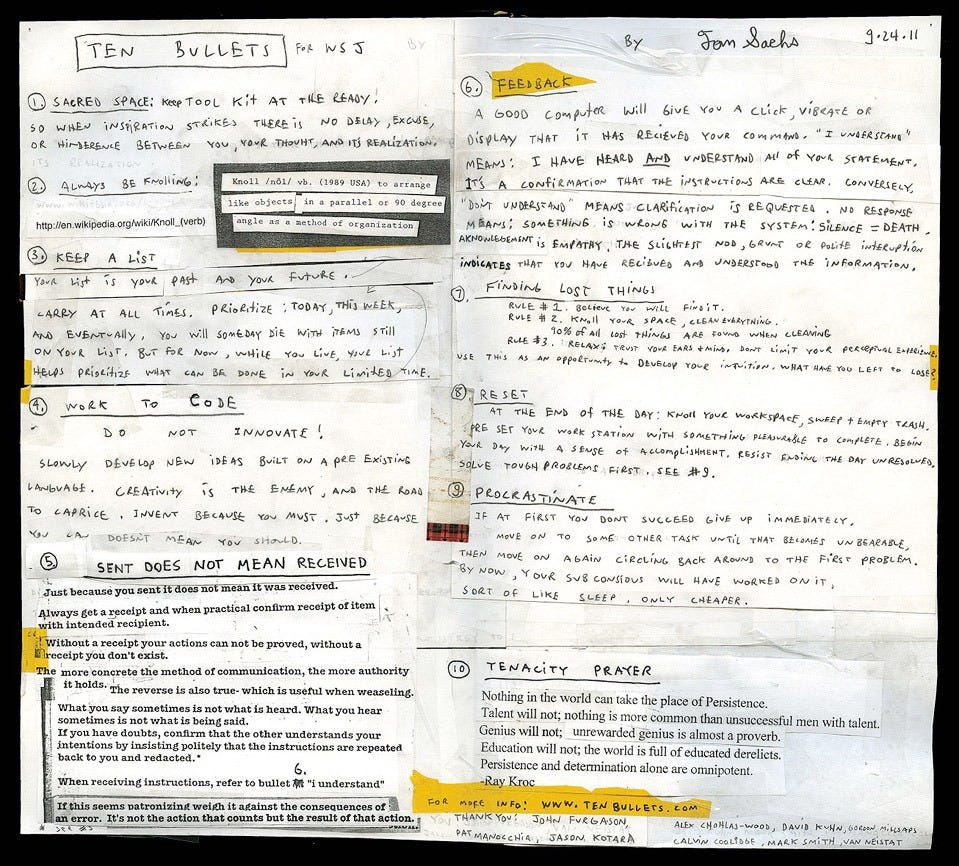 TEN BULLETS FOR WSJ
BY Tom Sachs 9.24.11
1. SACRED SPACE: KEEP TOOL KIT AT THE READY!
SO WHEN INSPIRATION STRIKES THERE IS NO DELAY, EXCUSE,
OR HINDERENCE BETWEEN YOU, YOUR THOUHT, AND ITS REALIZATION.
2. ALWAYS BE KNOLLING:
http://en.wikipedia.org/wiki/Knoll_(verb)
Knoll /nōl/ vb. (1989 USA) to arrange
like objects in a parallel or 90 degree
angle as a method of organization
3. KEEP A LIST
YOUR LIST IS YOUR PAST AND YOUR FUTURE.
CARRY AT ALL TIMES. PRIORITIZE: TODAY, THIS WEEK,
AND EVENTUALLY. YOU WILL SOMEDAY DIE WITH ITEMS STILL
ON YOUR LIST, BUT FOR NOW, WHILE YOU LIVE, YOUR LIST
HELPS PRIORITIZE WHAT CAN BE DONE IN YOUR LIMITED TIME.
4. WORK TO CODE
DO NOT INNOVATE!
SLOWLY DEVELOP NEW IDEAS BUILT ON A PRE EXISTING
LANGUAGE. CREATIVITY IS THE ENEMY, AND THE ROAD
TO CAPRICE. INVENT BECAUSE YOU MUST. JUST BECAUSE
YOU CAN DOESN'T MEAN YOU SHOULD.
5. SENT DOES NOT MEAN RECEIVED
Just because you sent it does not mean it was received.
Always get a receipt and when practical confirm receipt of item
with intended recipient.
Without a receipt your actions can not be proved, without a
receipt you don't exist.
The more concrete the method of communication, the more authority
it holds. The reverse is also true- which is useful when weaseling.
What you say sometimes is not what is heard. What you hear
sometimes is not what is being said.
If you have doubts, confirm that the other understands your
intentions by insisting politely that the instructions are repeated
back to you and redacted.*
When receiving instructions, refer to bullet 6. "i understand"
If this seems patronizing weigh it against the consequences of
an error. It's not the action that counts but the result of that action.
6. FEEDBACK
A GOOD COMPUTER WILL GIVE YOU A CLICK, VIBRATE OR
DISPLAY THAT IT HAS RECIEVED YOUR COMMAND. "I UNDERSTAND"
MEANS: I HAVE HEARD AND UNDERSTAND All OF YOUR STATEMENT.
IT'S A CONFIRMATION THAT THE INSTRUCTIONS ARE CLEAR. CONVERSELY,
"DON'T UNDERSTAND" MEANS CLARIFICATION IS REQUESTED. NO RESPONSE
MEANS: SOMETHING IS WRONG WITH THE SYSTEM: SILENCE = DEATH.
AKNOWLEDGEMENT IS EMPATHY. THE SLIGHTEST NOD, GRUNT OR POLITE INTERUPTION
INDICATES THAT YOU HAVE RECIEVED AND UNDERSTOOD THE INFORMATION.
7. FINDING LOST THINGS
RULE #1. BELIEVE YOU WILL FIND IT.
RULE #2. KNOLL YOUR SPACE, CLEAN EVERYTHING.
90% OF ALL LOST THINGS ARE FOUND WHEN CLEANING
RULE #3. RELAX: TRUST YOUR EARS + MIND, DONT LIMIT YOUR PERCEPTUAL EXPERIENCE.
USE THIS AS AN OPPORTUNITY to DEVELOP YOUR INTUITION. WHAT HAVE YOU LEFT TO LOSE?
8. RESET
AT THE END OF THE DAY: KNOLL YOUR WORKSPACE, SWEEP + EMPTY TRASH.
PRE SET YOUR WORK STATION WITH SOMETHING PLEASURABLE TO COMPLETE. BEGIN
YOUR DAY WITH A SENSE OF ACCOMPLISHMENT. RESIST ENDING THE DAY UNRESOLVED.
SOLVE TOUGH PROBLEMS FIRST. SEE #9.
9. PROCRASTINATE
IF AT FIRST YOU DONT SUCCEED GIVE UP IMMEDIATELY,
MOVE ON TO SOME OTHER TASK UNTIL THAT BECOMES UNBEARABLE,
THEN MOVE ON AGAIN CIRCLING BACK AROUND TO THE FIRST PROBLEM.
BY NOW, YOUR SUBCONSIOUS WILL HAVE WORKED ON IT,
SORT OF LIKE SLEEP, ONLY CHEAPER.
10 TENACITY PRAYER
Nothing in the world can take the place of Persistence.
Talent will not; nothing is more common than unsuccessful men with talent.
Genius will not; unrewarded genius is almost a proverb.
Education will not; the world is full of educated derelicts.
Persistence and determination alone are omnipotent.
-Ray Kroc
FOR MORE INFO: WWW.TENBULLETS.COM
THANK YOU: JOHN FURGASON,
PAT MANOCCHIA, JASON KOTARA
ALEX CHOHLAS-WOOD, DAVID KUHN, GORDON MILLSAPS
CALVIN COOLIDGE, MARK SMITH, VAN NEISTAT